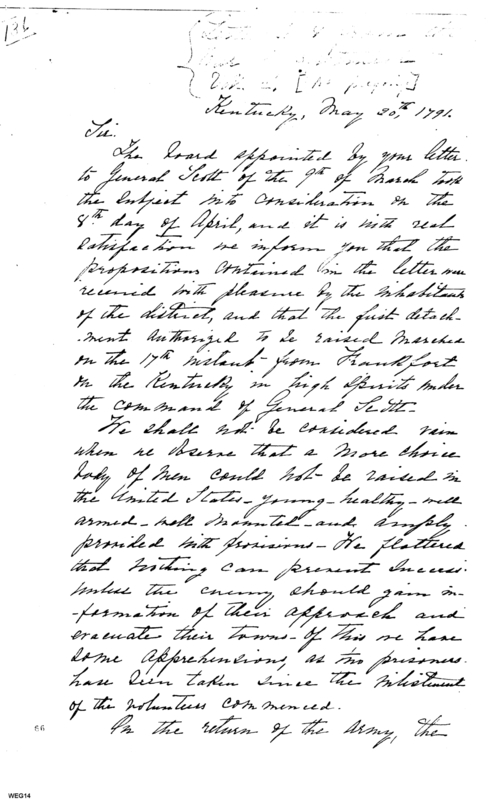 136
[no
Kentucky, May 20th, 1791.
Sir.
The board appointed by your letter
to General Scott of the 9th of March took
the subject into consideration on the
8th day of April, and it is with real
satisfaction we inform you that the
propositions contained in the letter were
received with pleasure by the inhabitants
of the district, and that the first detach-
-ment authorized to be raised marched
on the 17th instant from Frankfort
on the Kentucky in high spirits under
the command of General Scott-
We shall not be considered vain
when we observe that a more choice
body of men could not be raised in
the United States- young- healthy- well
armed- well mounted- and amply
provided with provisions- We flattered
that nothing can prevent success.
unless the enemy should gain in-
-formation of their approach and
evacuate their towns- Of this we have
some apprehensions, as two prisoners
have been taken since the inlistment
of the volunteers commenced.
On the return of the army, the
86
WEG14